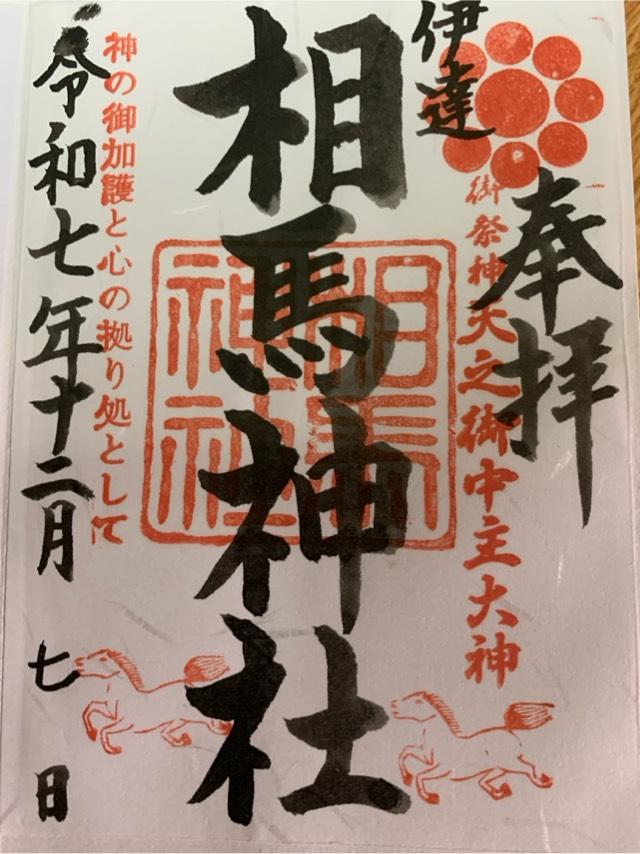 奉拝
伊達
御祭神天之御中主大神
相馬神社
相馬
神社
神の御加護と心の拠り処として
令和七年十二月七日